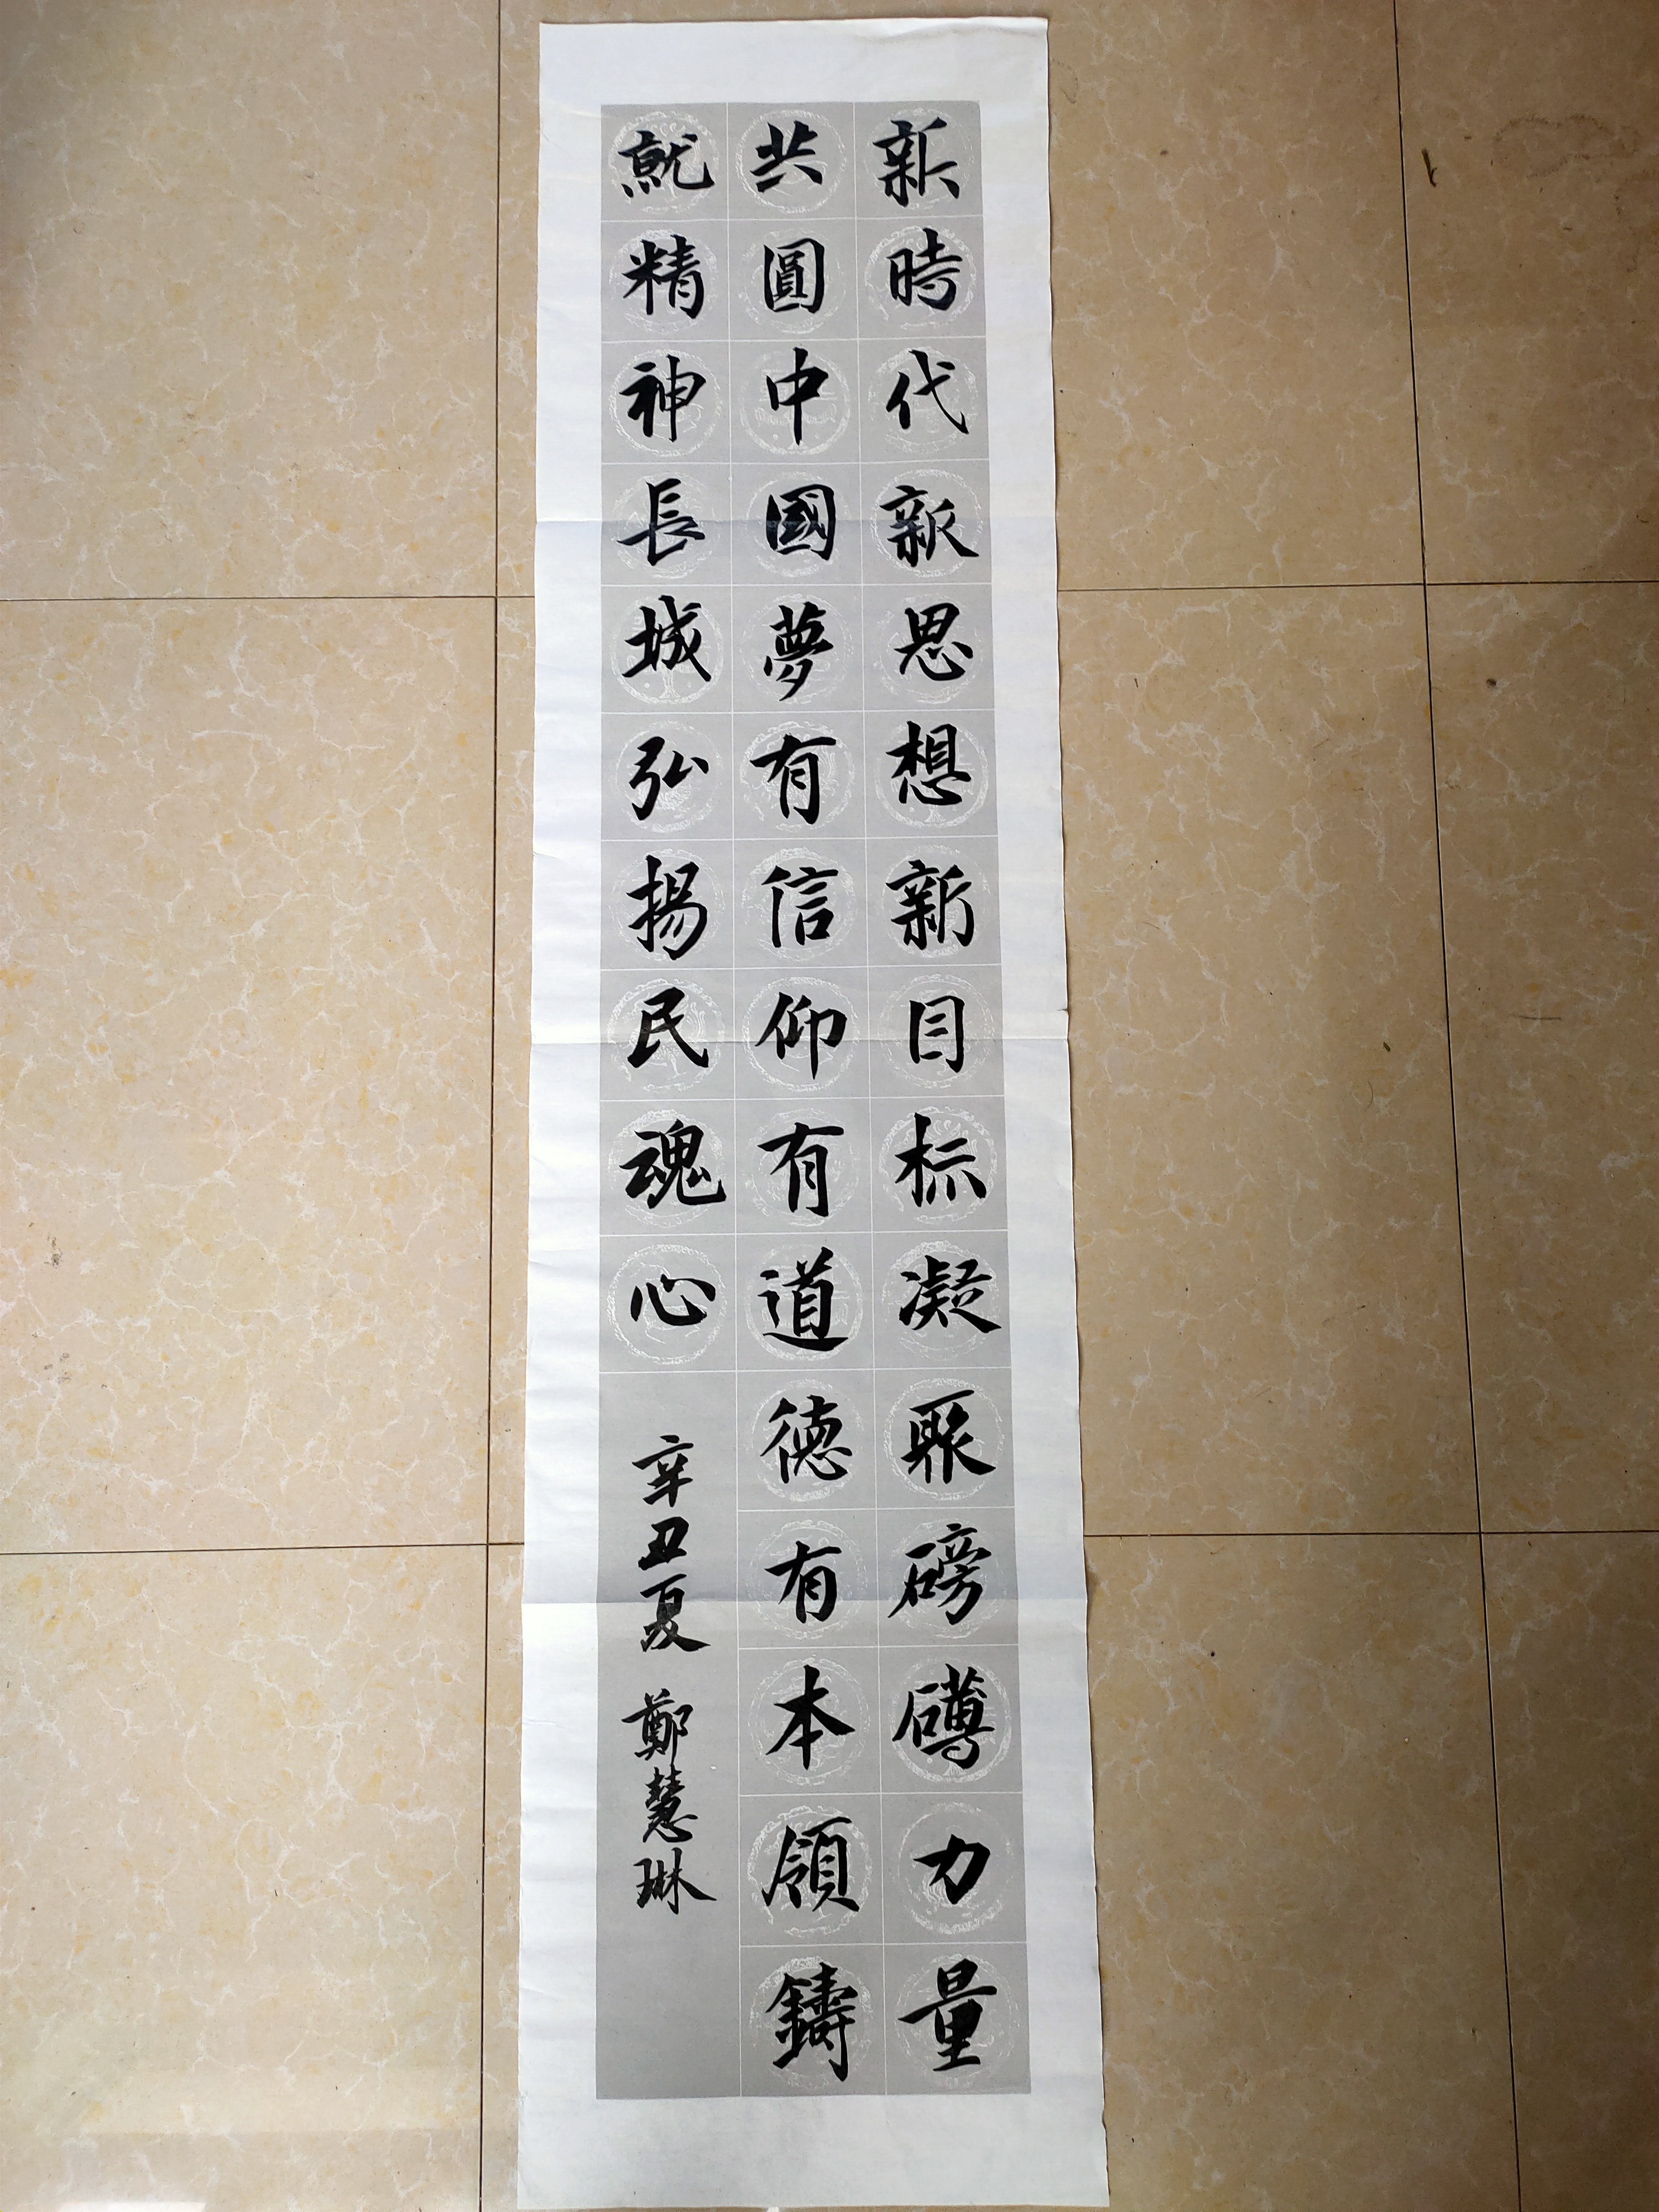 新時代新思想新目标凝聚磅礴力量
共圓中國夢有信仰有道德有本領鑄
就精神長城弘揚民魂心
辛丑夏 鄭慧琳